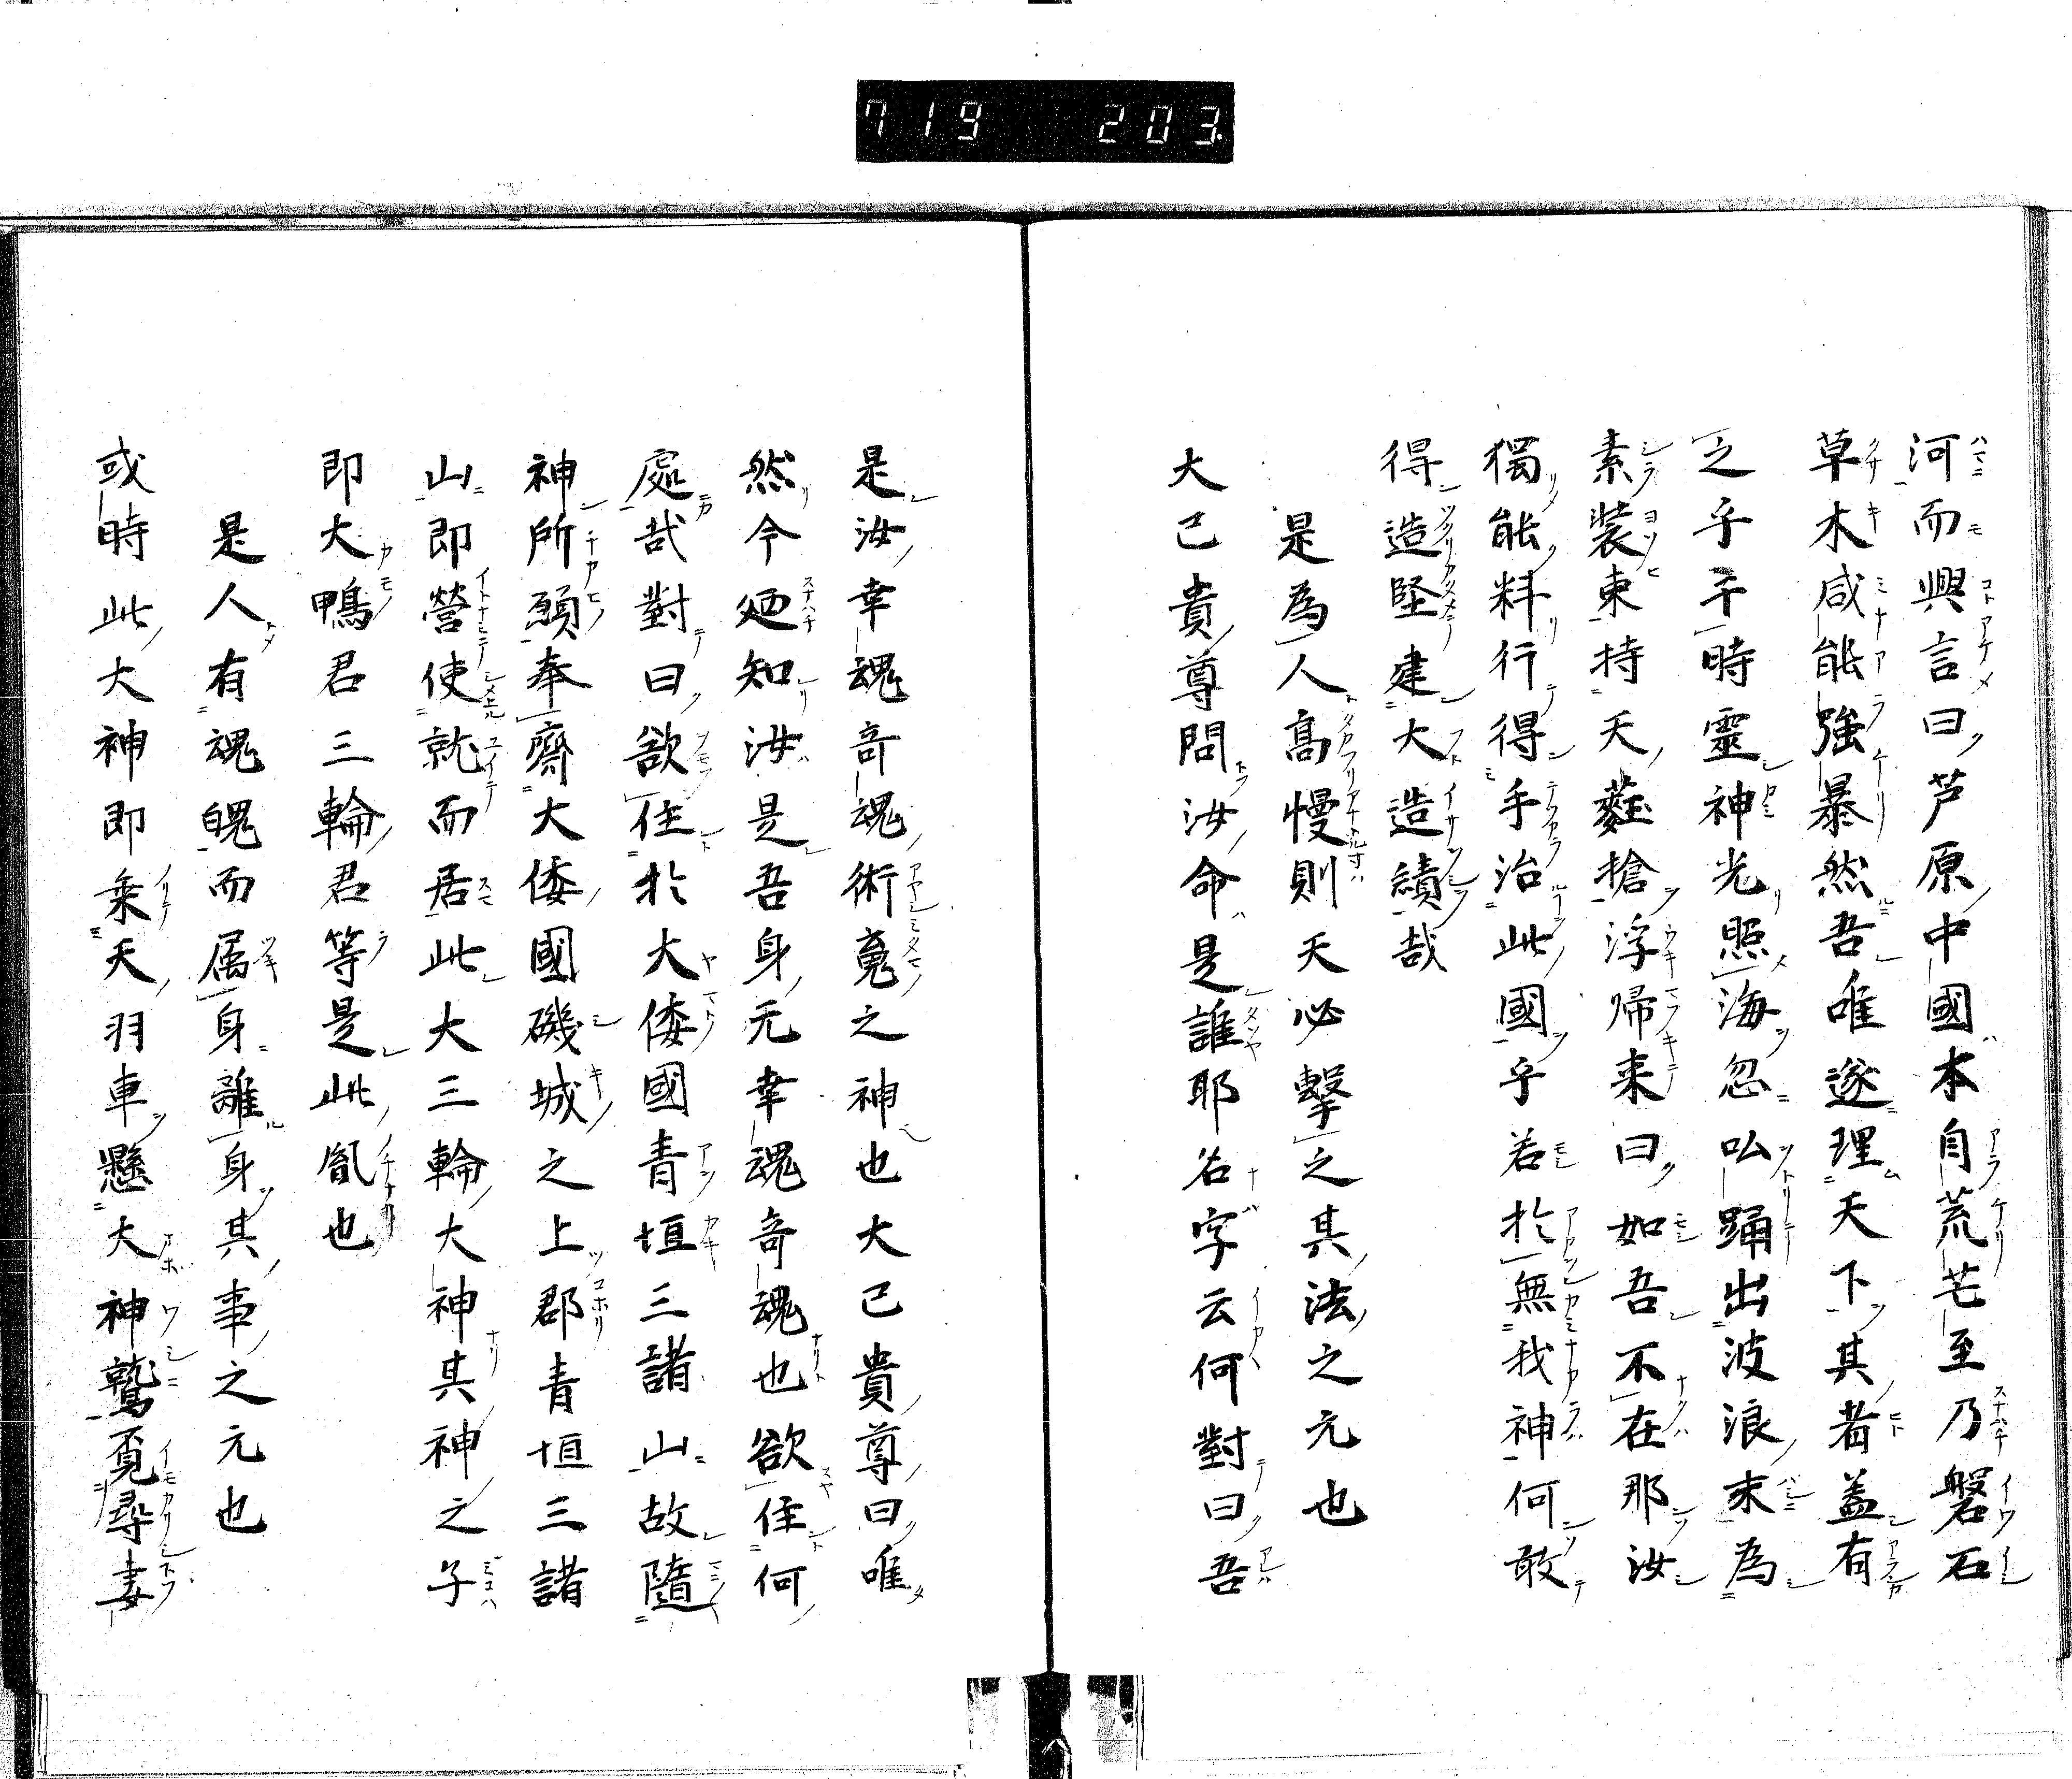 719 203
河而興言曰芦原中國本自荒芒至乃磐石
草木咸能強暴然吾唯遂理天下其者盖有
之乎于時靈神光照海忽吣踊出波浪末為
素装束持天蕤槍浮帰来曰如吾不在那汝
獨能料行得手治此國乎若於無我神何敢
得造堅建大造績哉
是為人高慢則天必撃之其法之元也
大己貴尊問汝命是誰耶名字云何對曰吾
是汝幸魂奇魂術䰟之神也大己貴尊曰唯
然今廼知汝是吾身元幸魂奇魂也欲住何
處哉對曰欲住於大倭國青垣三諸山故隨
神所願奉齋大倭國磯城之上郡青垣三諸
山即營使就而居此大三輪大神其神之子
即大鴨君三輪君等是此胤也
是人有魂魄而属身離身其事之元也
或時此大神即乗天羽車懸大神鷲覓尋妻